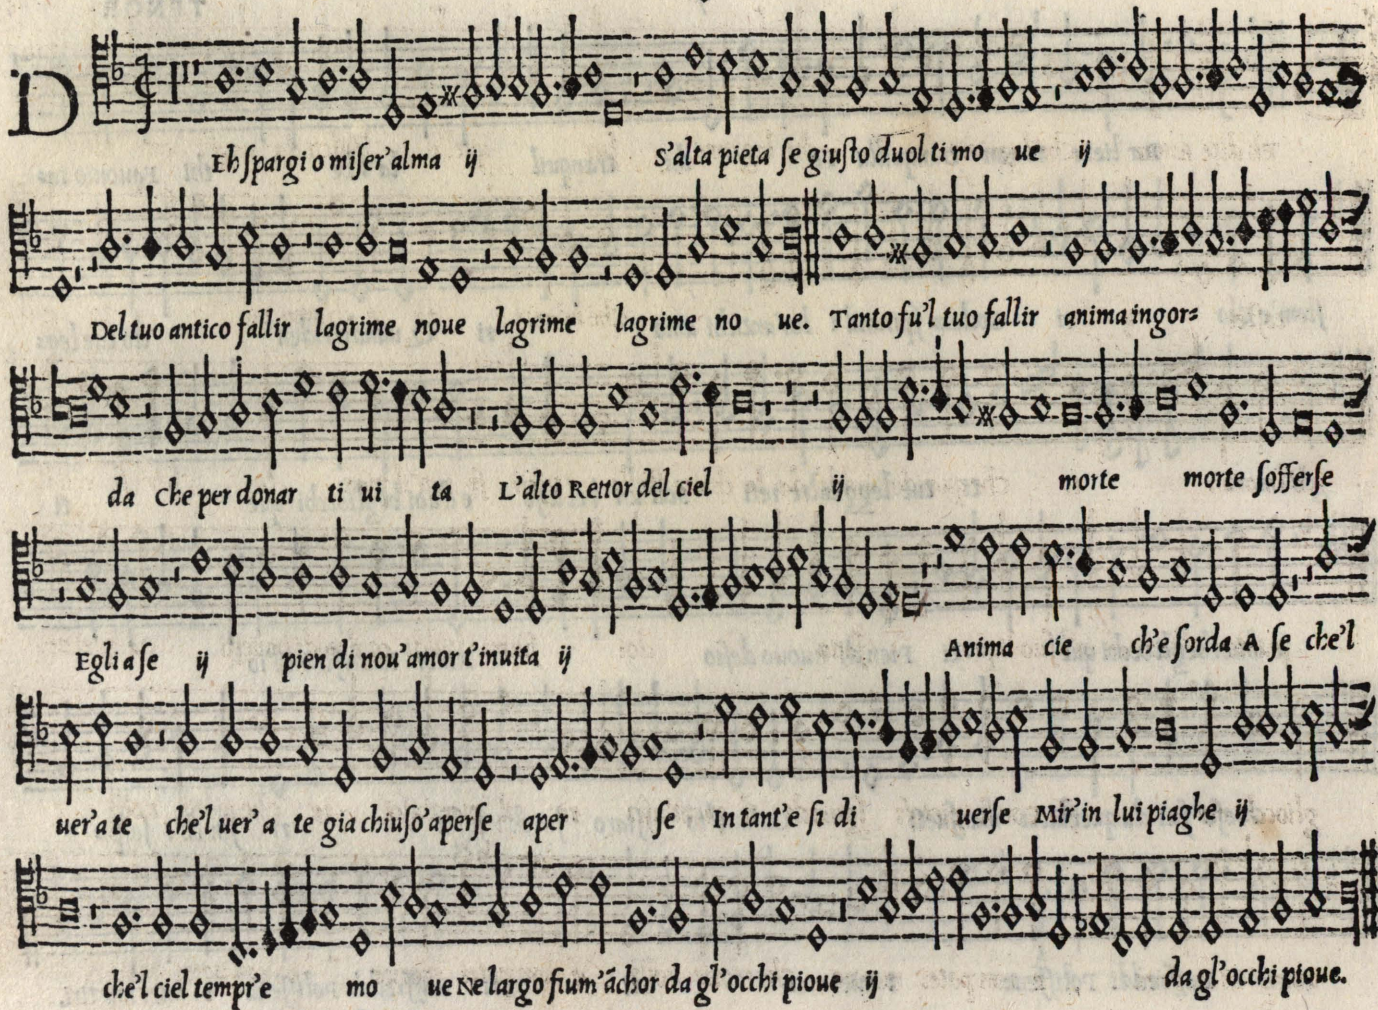 D
Eh spargi o miser'alma ij S'alta pieta se giusto duol ti mo ue ij
Del tuo antico fallir lagrime noue lagrime lagrime no ue. Tanto fu'l tuo fallir anima ingor=
da Che per donar ti ui ta L'alto Rettor del ciel ij morte morte sofferse
Egli a se ij pien di nou'amor t'inuita ij Anima cie ch'e sorda A se che'l
uer'a te che'l uer'a te gia chiuso'aperse aper se In tant'e si di uerse Mir'in lui piaghe ij
che'l ciel tempr'e mo ue Ne largo fium'ãchor da gl'occhi pioue ij da gl'occhi pioue.